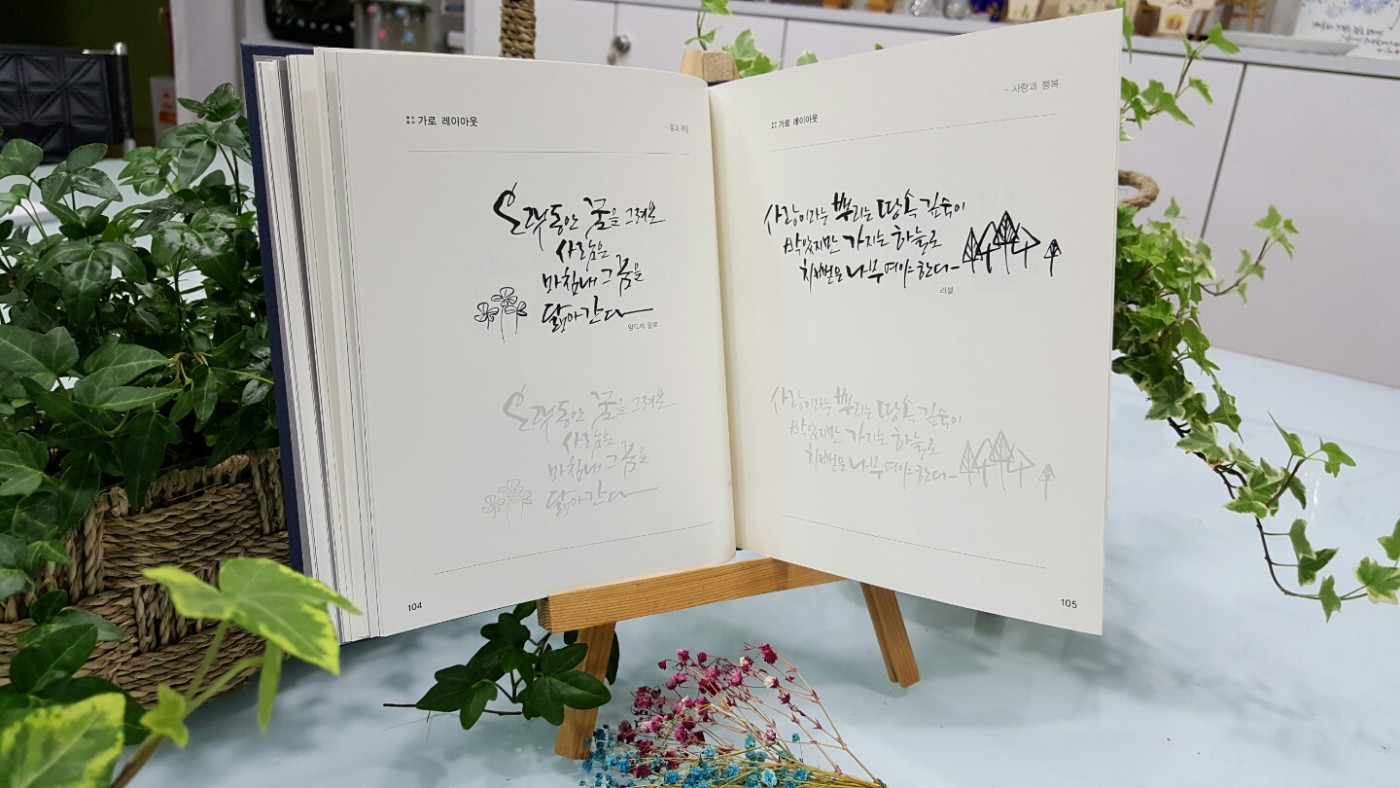 가로 레이아웃
오랫동안 꿈을 그려온
사람은
마침내 그 꿈을
닮아간다
앙드레 말로
오랫동안 꿈을 그려온
사람은
마침내 그 꿈을
닮아간다
104
- 사랑과 행복
가로 레이아웃
사랑이라는 뿌리는 땅속 깊숙이
박았지만 가지는 하늘로
치뻗은 나무여야 한다
러셀
사랑이라는 뿌리는 땅속 깊숙이
박았지만 가지는 하늘로
치뻗은 나무여야 한다
105